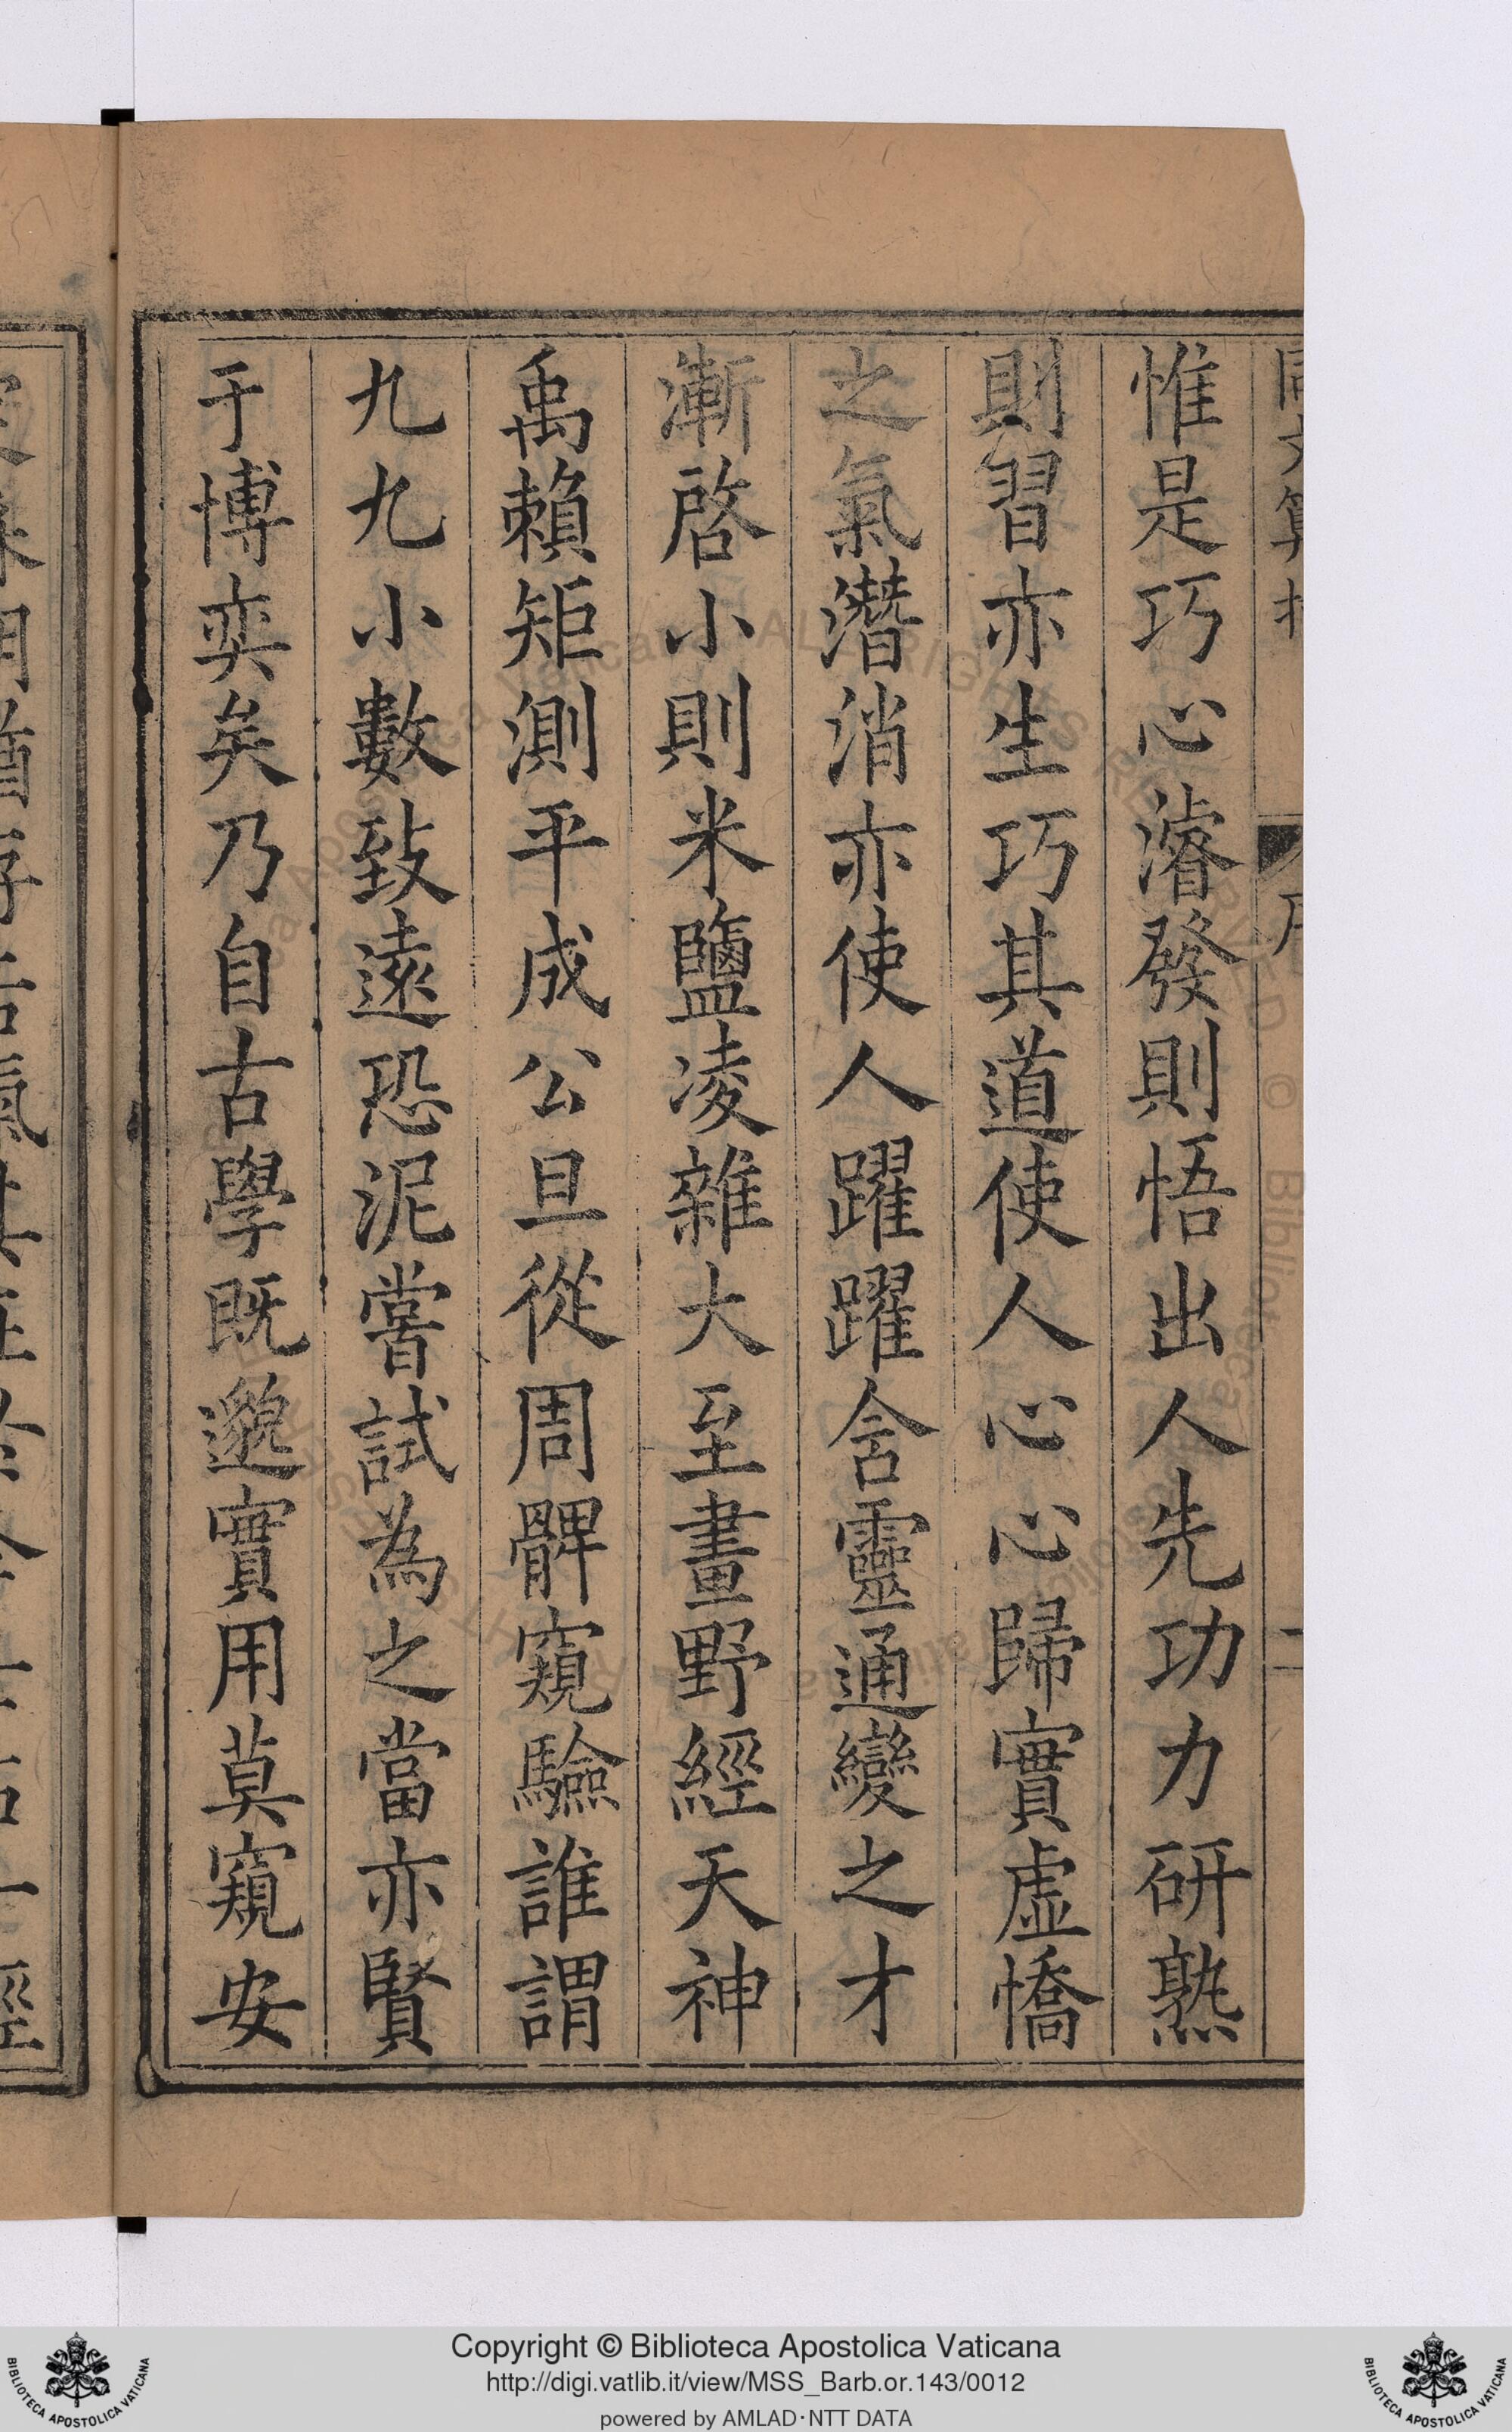 惟是巧心濬發則悟出人先功力研熟
則習亦生巧其道使人心心歸實虛憍
之氣潛消亦使人躍躍含靈通變之才
漸啓小則米鹽凌雜大至畫野經天神
禹賴矩測平成公旦從周髀窺驗誰謂
九九小數致遠恐泥嘗試為之當亦賢
于博奕矣乃自古學既邈實用莫窺安
Copyright © Biblioteca Apostolica Vaticana
http://digi.vatlib.it/view/MSS_Barb.or.143/0012
powered by AMLAD·NTT DATA
BIBLIOTECA APOSTOLICA VATICANA
BIBLIOTECA APOSTOLICA VATICANA